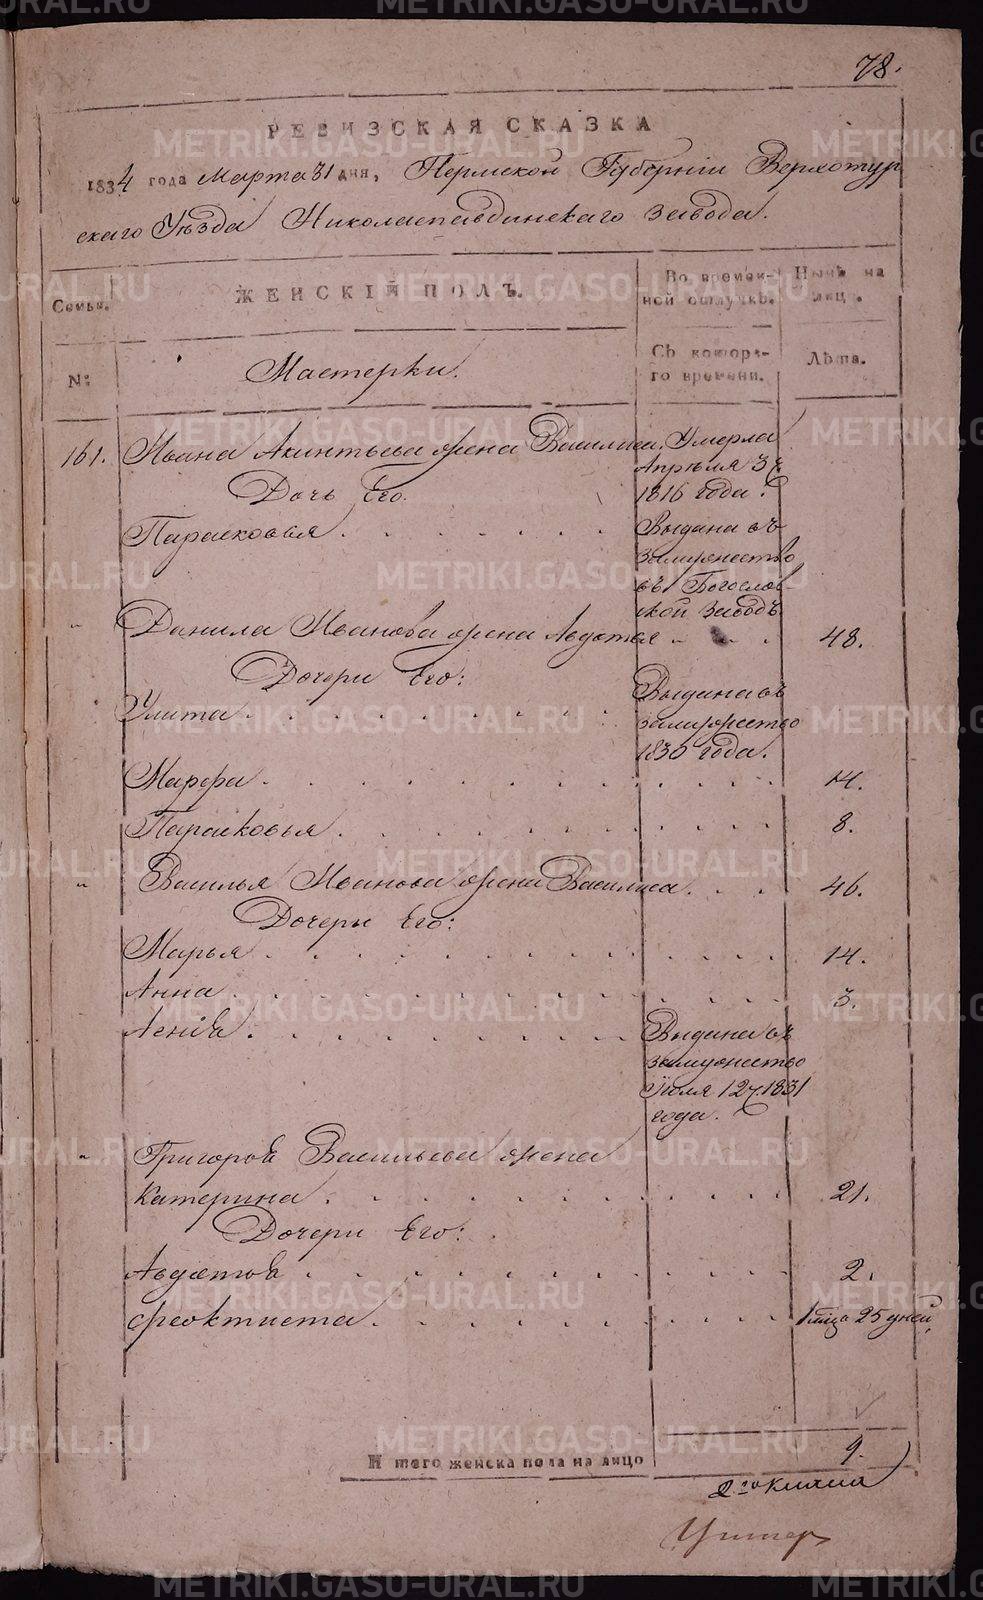 78.
РЕВИЗСКАЯ СКАЗКА
1834 года Марта 31 дня, Пермской Губерніи Верхотур
скаго Уѣзда Николаепавдинскаго завода.
Семьи.
ЖЕНСКІЙ ПОЛЪ.
Во времен-
ной отлучкѣ.
Нынѣ на
лицо.
№:
Мастерки.
Съ котора-
го времени.
Лѣта.
161. Ивана Акинтьева жена Василиса. Умерла
Апрѣля 3ч.
Дочь Его. 1816 года.
Парасковья . . . . . . . Выдана въ
замужество
въ Богослов-
ской заводъ
„ Данила Иванова жена Авдотья . . . 48.
Дочери Его: Выдана въ
Улита . . . . . . . . . замужество
1830 года.
Марфа . . . . . . . . . . . 14.
Парасковья . . . . . . . . . . 8.
„ Василья Иванова жена Василиса . . . 46.
Дочеры Его:
Марья . . . . . . . . . . . 14.
Анна . . . . . . . . . . . 3.
Ксенія . . . . . . . . . Выдана въ
замужество
Іюля 12ч. 1831
года.
„ Григорья Васильева жена
Катерина . . . . . . . . . . 21.
Дочери Его:
Авдотья . . . . . . . . . . . 2.
Феоктиста . . . . . . . . . 1 мца 25 дней,
И того женска пола на лицо 9.